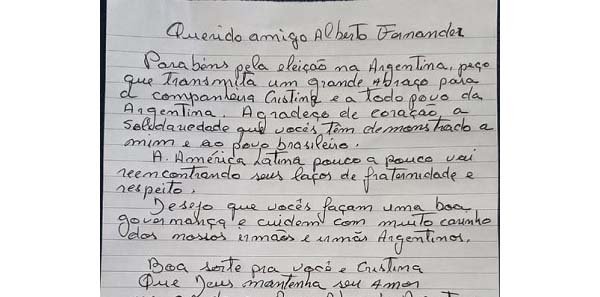 Querido amigo Alberto Fernandez
Parabéns pela eleição na Argentina, peço
que transmita um grande abraço para
a companheira Cristina e a todo povo da
Argentina. Agradeço de coração a
solidariedade que vocês têm demonstrado a
mim e ao povo brasileiro.
A América Latina pouco a pouco vai
reencontrando seus laços de fraternidade e
respeito.
Desejo que vocês façam uma boa
governança e cuidem com muito carinho
dos nossos irmãos e irmãs Argentinos.
Boa sorte pra você e Cristina
Que Deus mantenha seu Amor